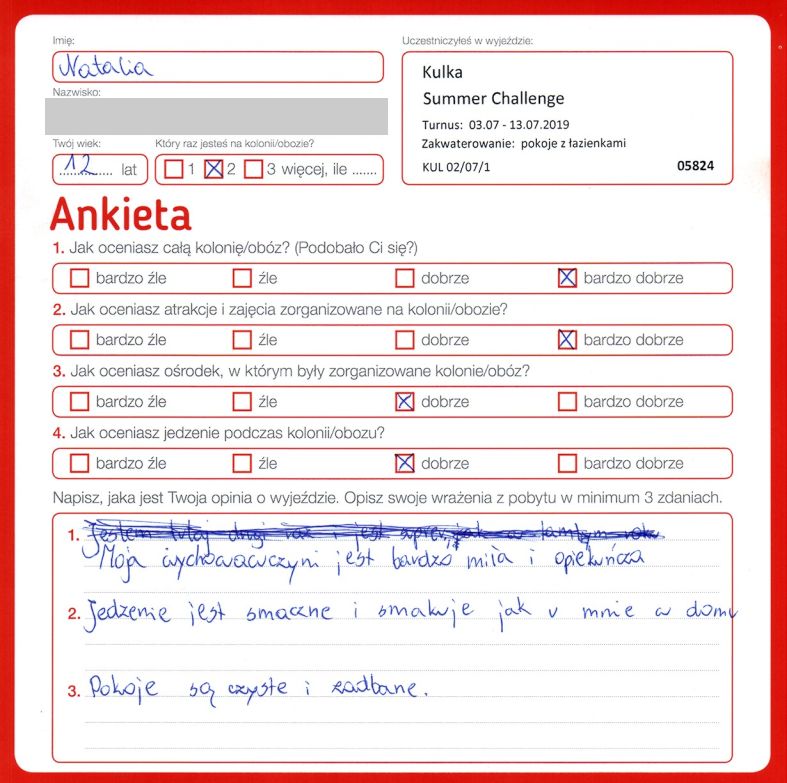 Imię:
Natalia
Nazwisko:
Twój wiek:
12 lat
Który raz jesteś na kolonii/obozie?
1 2 3 więcej, ile .......
Uczestniczyłeś w wyjeździe:
Kulka
Summer Challenge
Turnus: 03.07 - 13.07.2019
Zakwaterowanie: pokoje z łazienkami
KUL 02/07/1 05824
Ankieta
1. Jak oceniasz całą kolonię/obóz? (Podobało Ci się?)
bardzo źle źle dobrze bardzo dobrze
2. Jak oceniasz atrakcje i zajęcia zorganizowane na kolonii/obozie?
bardzo źle źle dobrze bardzo dobrze
3. Jak oceniasz ośrodek, w którym były zorganizowane kolonie/obóz?
bardzo źle źle dobrze bardzo dobrze
4. Jak oceniasz jedzenie podczas kolonii/obozu?
bardzo źle źle dobrze bardzo dobrze
Napisz, jaka jest Twoja opinia o wyjeździe. Opisz swoje wrażenia z pobytu w minimum 3 zdaniach.
1. Jestem tutaj drugi raz i jest super, jak w tamtym roku
Moja wychowawczyni jest bardzo miła i opiekuńcza
2. Jedzenie jest smaczne i smakuje jak u mnie w domu
3. Pokoje są czyste i zadbane.